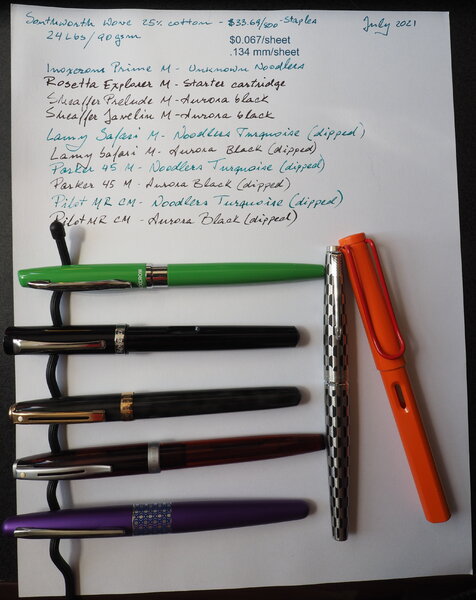 Southworth Wove 25% cotton - $33.69/500 - Staples July 2021
24 Lbs/90gsm
$0.067/sheet
.134 mm/sheet
Inoxcrom Prime M - Unknown Noodlers
Rosetta Explorer M - Starter cartridge
Sheaffer Prelude M - Aurora black
Sheaffer Javelin M - Aurora black
Lamy Safari M - Noodlers Turquoise (dipped)
Lamy Safari M - Aurora Black (dipped)
Parker 45 M - Noodlers Turquoise (dipped)
Parker 45 M - Aurora Black (dipped)
Pilot MR CM - Noodlers Turquoise (dipped)
Pilot MR CM - Aurora Black (dipped)